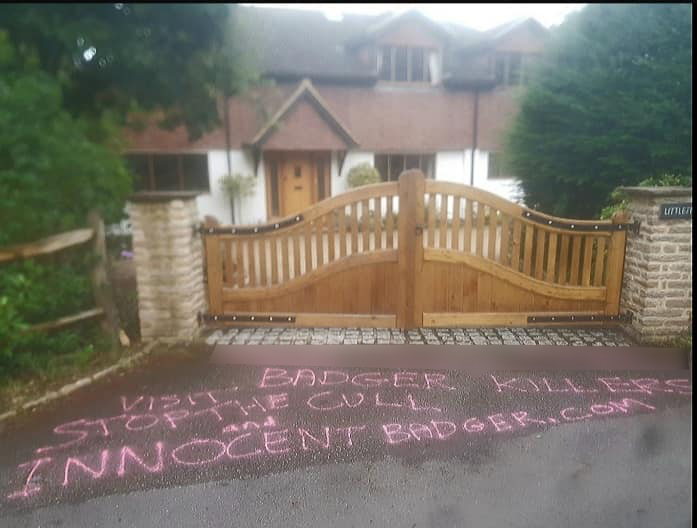 BADGER KILLERS
VISIT.
STOP THE CULL
and
INNOCENT BADGER.COM